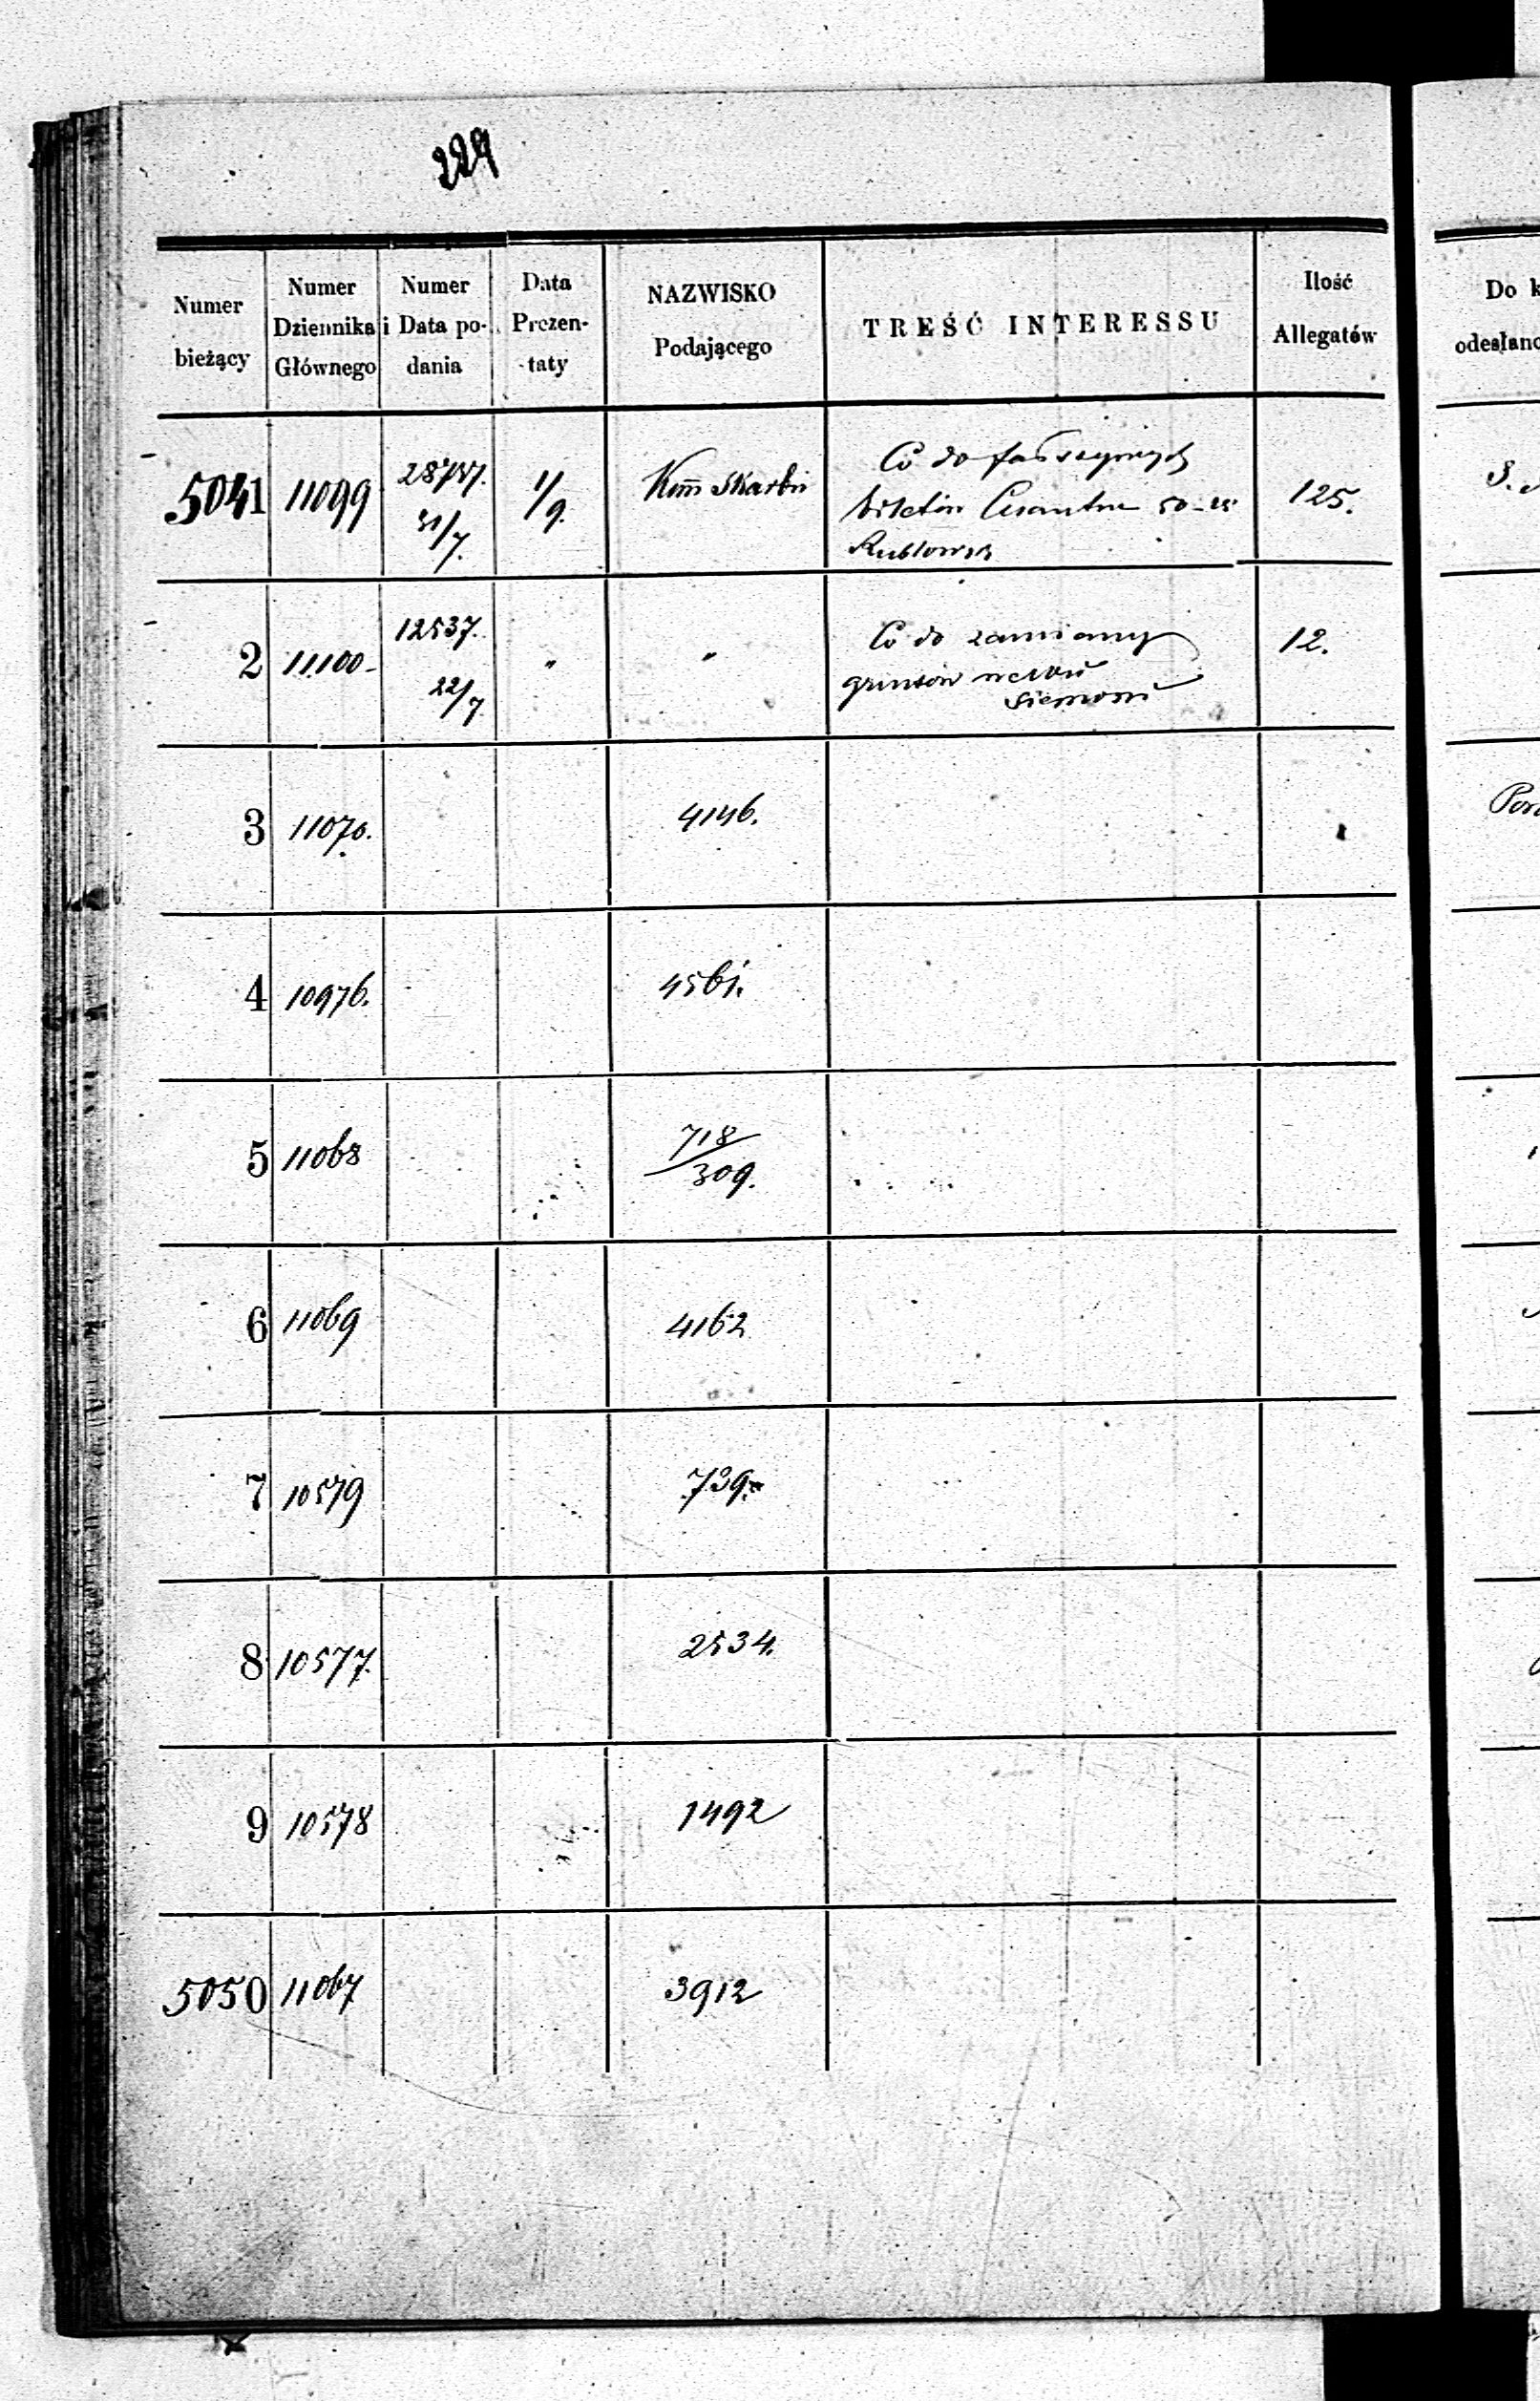 224
Numer bieżący
Numer Dziennika Głównego
Numer i Data podania
Data Prezentaty
NAZWISKO Podającego
TREŚĆ INTERESSU
Ilość Allegatów
Do k
odesłano
5041 11099 31/7. 1/9. Kom̄ Skarbu 125.
Co do fałszywych
biletów 50 -
Rublowych
2 11100 - 12537. 22/7. " " 12.
Co do zamiany
gruntów
3 11070. 4146.
Por
4 10976. 4561.
5 11068 718/309.
6 11069 4162
7 10579 739.
8 10577. 2534.
9 10578 1492
5050 11067 3912